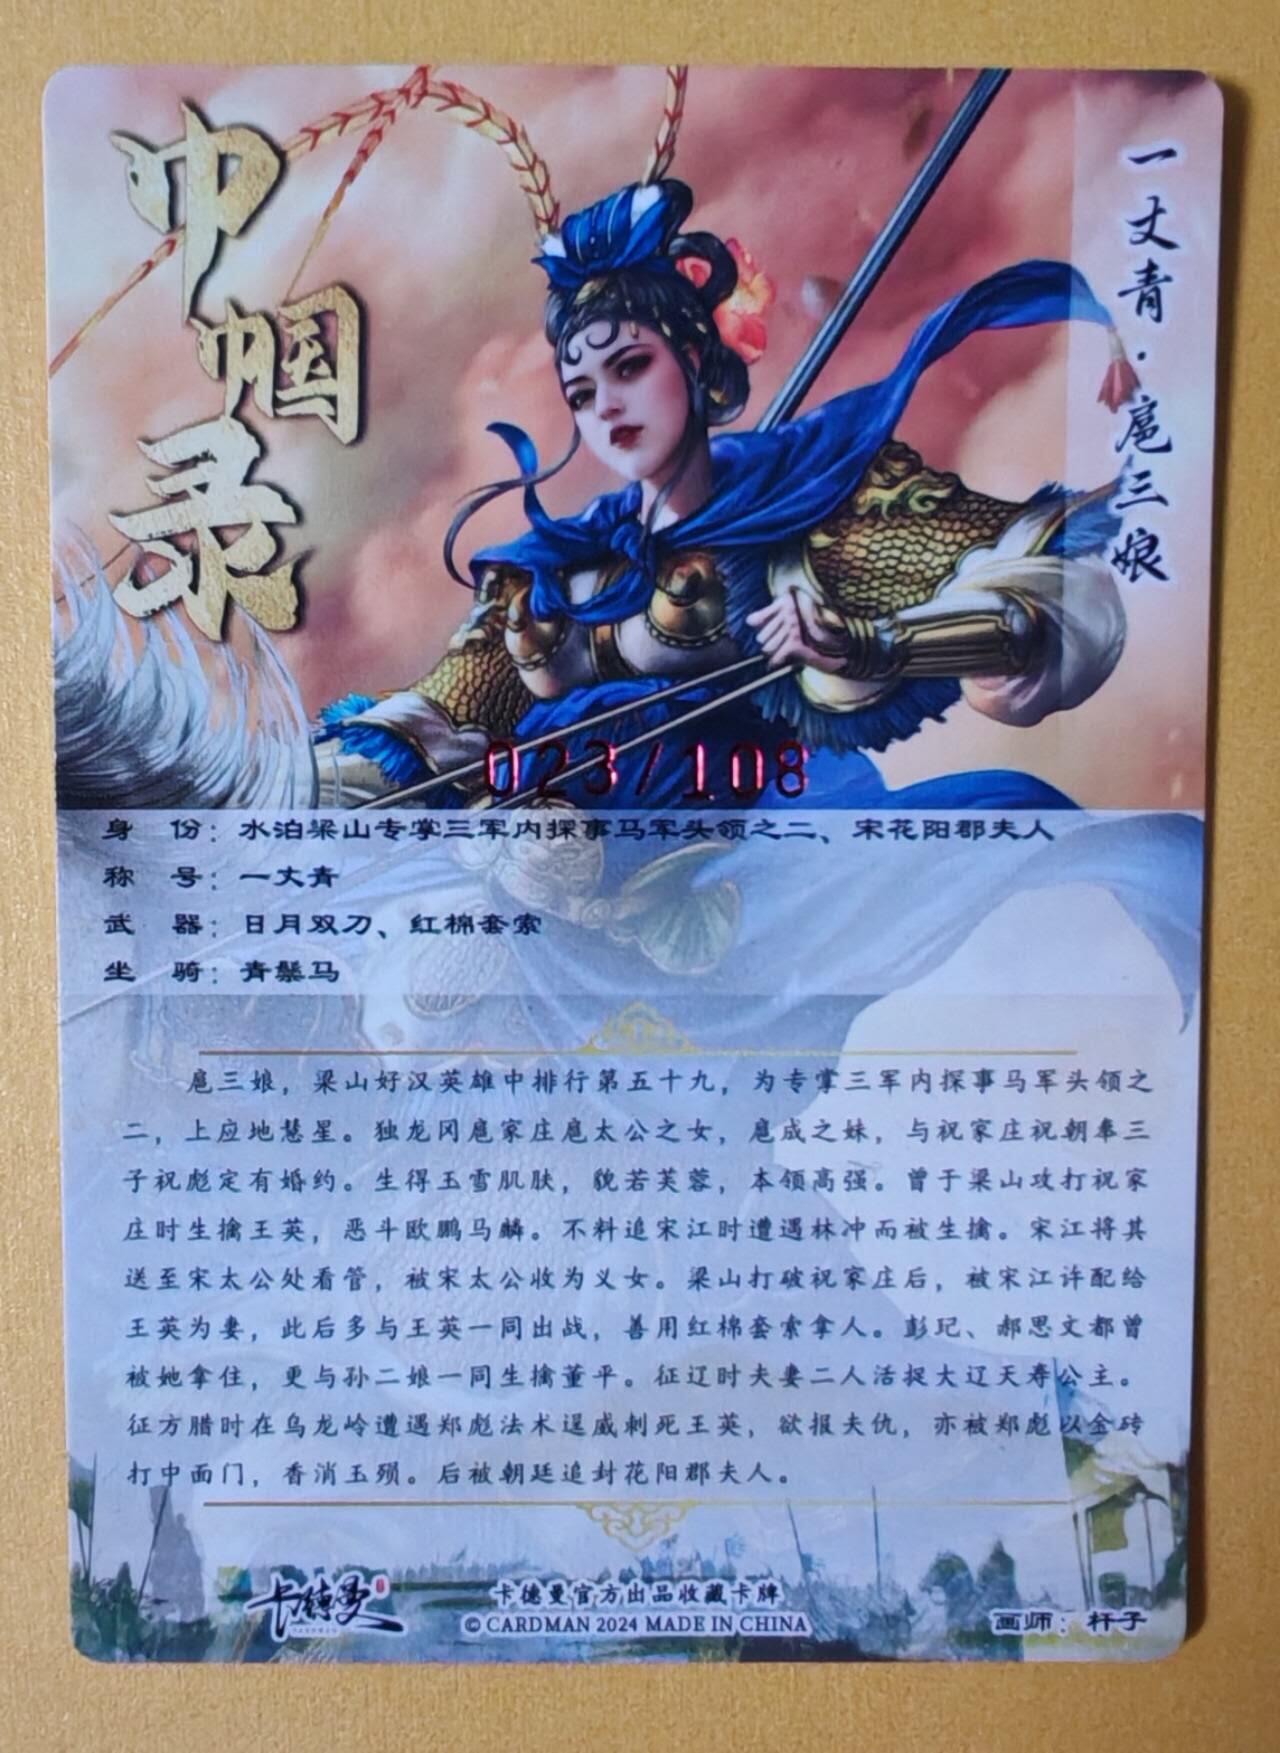 巾帼录
一丈青·扈三娘
023/108
身 份：水泊梁山专掌三军内探事马军头领之二、宋花阳郡夫人
称 号：一丈青
武 器：日月双刀、红棉套索
坐 骑：青鬃马
扈三娘，梁山好汉英雄中排行第五十九，为专掌三军内探事马军头领之
二，上应地慧星。独龙冈扈家庄扈太公之女，扈成之妹，与祝家庄祝朝奉三
子祝彪定有婚约。生得玉雪肌肤，貌若芙蓉，本领高强。曾于梁山攻打祝家
庄时生擒王英，恶斗欧鹏马麟。不料追宋江时遭遇林冲而被生擒。宋江将其
送至宋太公处看管，被宋太公收为义女。梁山打破祝家庄后，被宋江许配给
王英为妻，此后多与王英一同出战，善用红棉套索拿人。彭玘、郝思文都曾
被她拿住，更与孙二娘一同生擒董平。征辽时夫妻二人活捉大辽天寿公主。
征方腊时在乌龙岭遭遇郑彪法术逞威刺死王英，欲报夫仇，亦被郑彪以金砖
打中面门，香消玉殒。后被朝廷追封花阳郡夫人。
卡德曼
卡德曼官方出品收藏卡牌
© CARDMAN 2024 MADE IN CHINA
画师：杆子